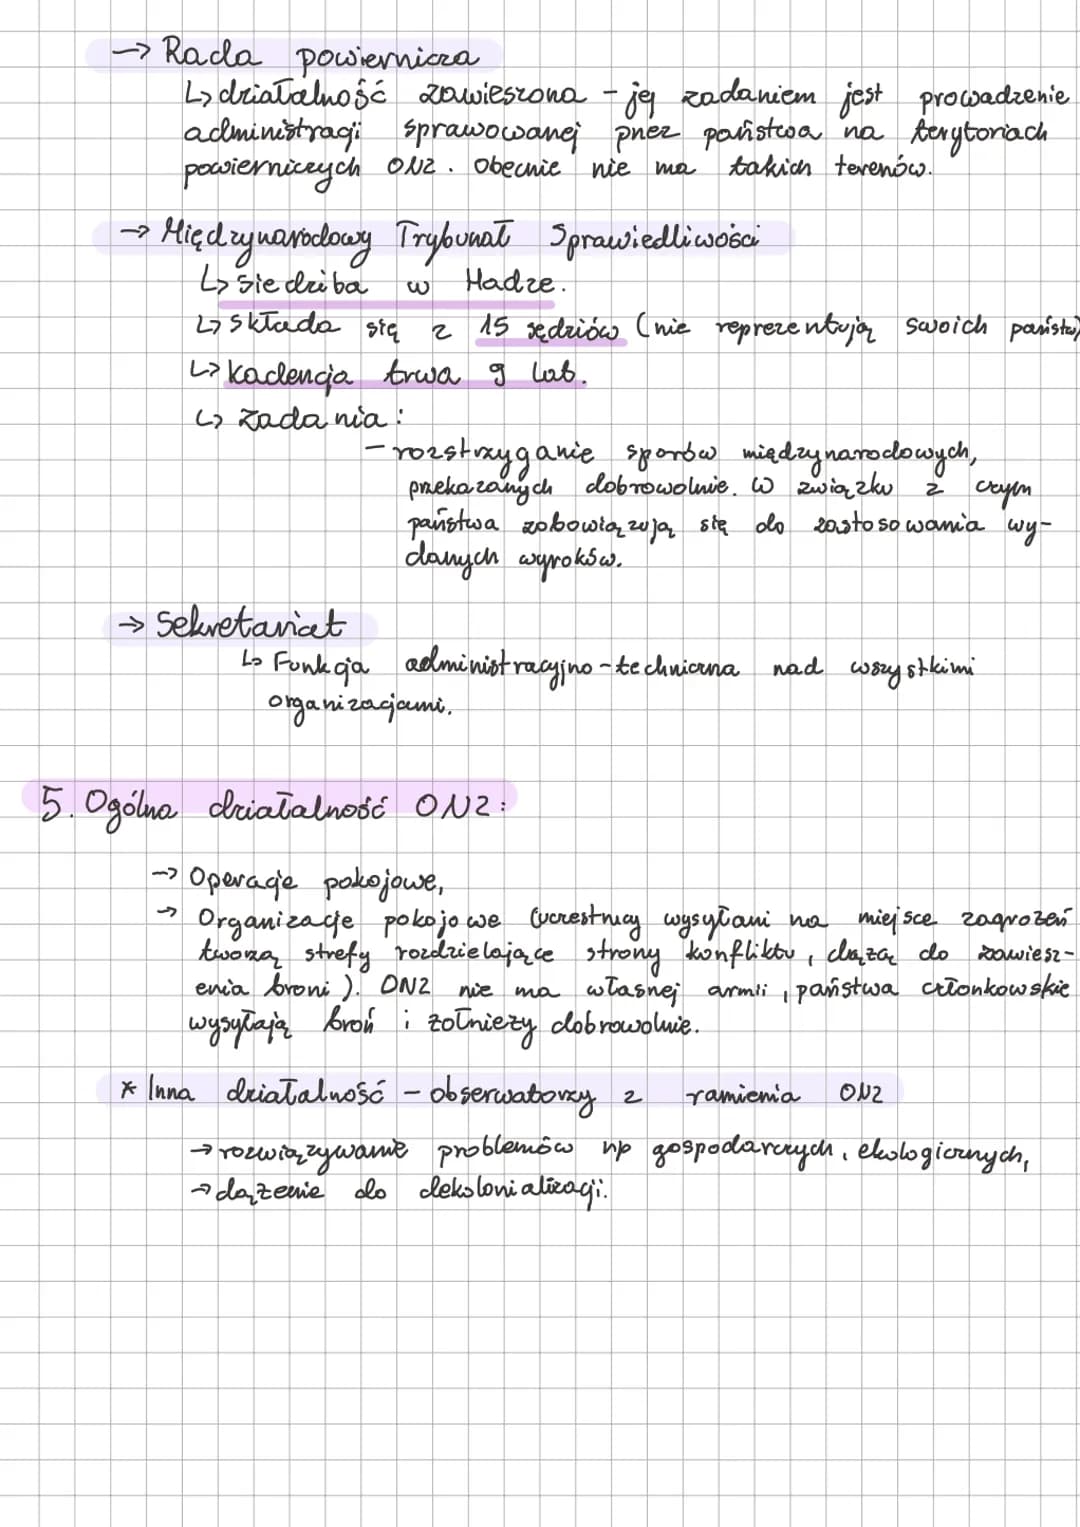 → Rada powiernicza
↳ działalność zawieszona - jej zadaniem jest prowadzenie
administracji sprawowanej przez państwa na terytoriach
powierniczych ONZ. Obecnie nie ma takich terenów.
→ Międzynarodowy Trybunał Sprawiedliwości
↳ siedziba w Hadze.
↳ składa się z 15 sędziów (nie reprezentują swoich państw)
↳ kadencja trwa 9 lat.
↳ zadania:
- rozstrzyganie sporów międzynarodowych,
przekazanych dobrowolnie. W związku z czym
państwa zobowiązują się do zastosowania wy-
danych wyroków.
→ Sekretariat
↳ Funkcja administracyjno-techniczna nad wszystkimi
organizacjami.
5. Ogólna działalność ONZ:
→ Operacje pokojowe,
→ Organizacje pokojowe (uczestnicy wysyłani na miejsce zagrożeń
tworzą strefy rozdzielające strony konfliktu, dążą do zawiesz-
enia broni). ONZ nie ma własnej armii, państwa członkowskie
wysyłają broń i żołnieży dobrowolnie.
* Inna działalność - obserwatorzy z ramienia ONZ
→ rozwiązywanie problemów np gospodarczych, ekologicznych,
→ dążenie do dekolonializacji.